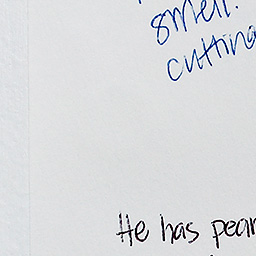 smell.
cutting
He has pear